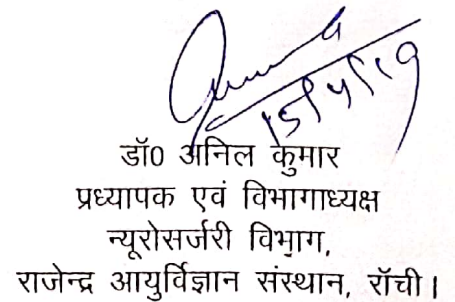 15/4/19
डॉ0 अनिल कुमार
प्रध्यापक एवं विभागाध्यक्ष
न्यूरोसर्जरी विभाग,
राजेन्द्र आयुर्विज्ञान संस्थान, रॉची।